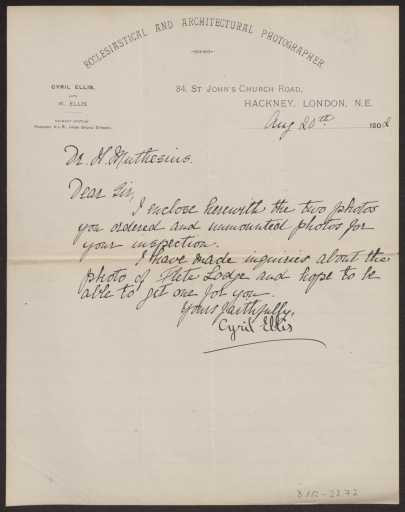 ECCLESIASTICAL AND ARCHITECTURAL PHOTOGRAPHER
CYRIL ELLIS,
W. ELLIS
84, ST JOHN'S CHURCH ROAD,
HACKNEY, LONDON, N.E.
Aug 20th 1902
Dr. H. Muthesius.
Dear Sir,
I enclose herewith the two photos
you ordered and unmounted photos for
your inspection.
I have made inquiries about the
photo of Flete Lodge and hope to be
able to get one for you.
Yours faithfully,
Cyril Ellis